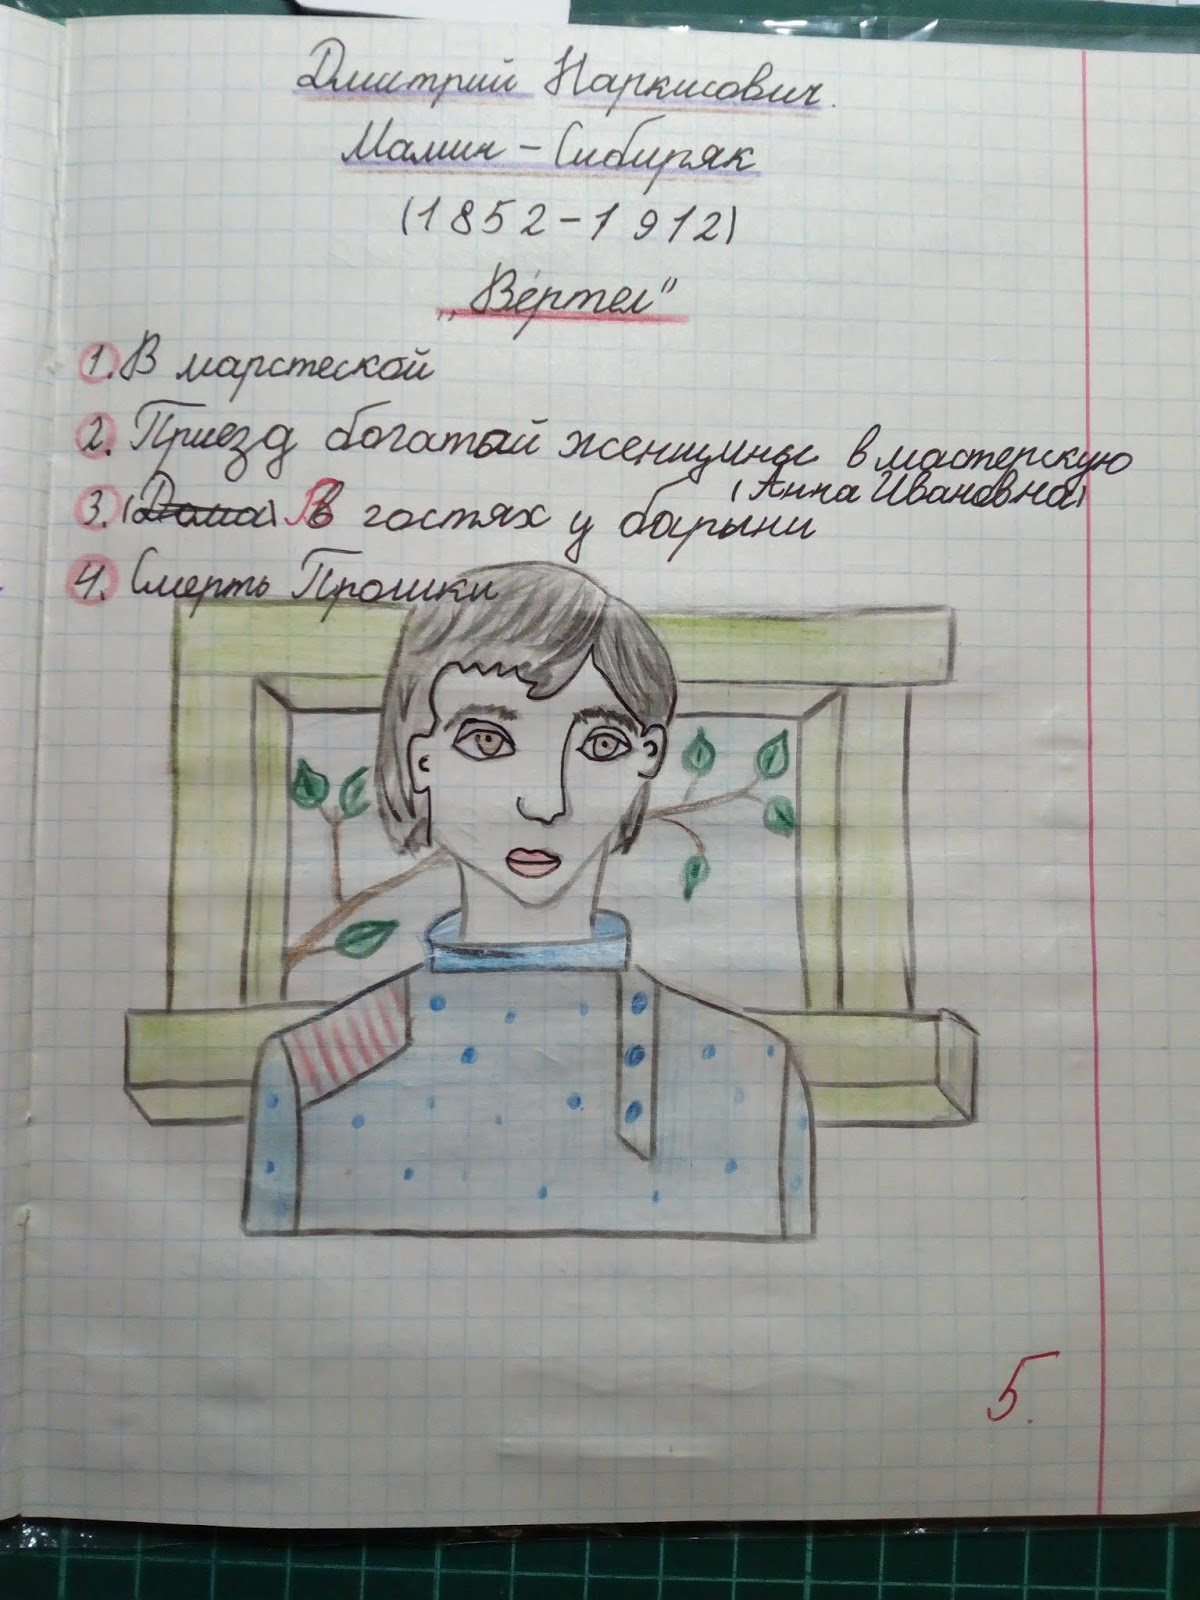 Дмитрий Наркисович.
Мамин - Сибиряк
(1852-1912)
„Вертел"
1. В марстеской
2. Приезд богатый женщины в мастерскую
(Анна Ивановна)
3. (Дома) В гостях у барыни
4. Смерть Прошки
5.